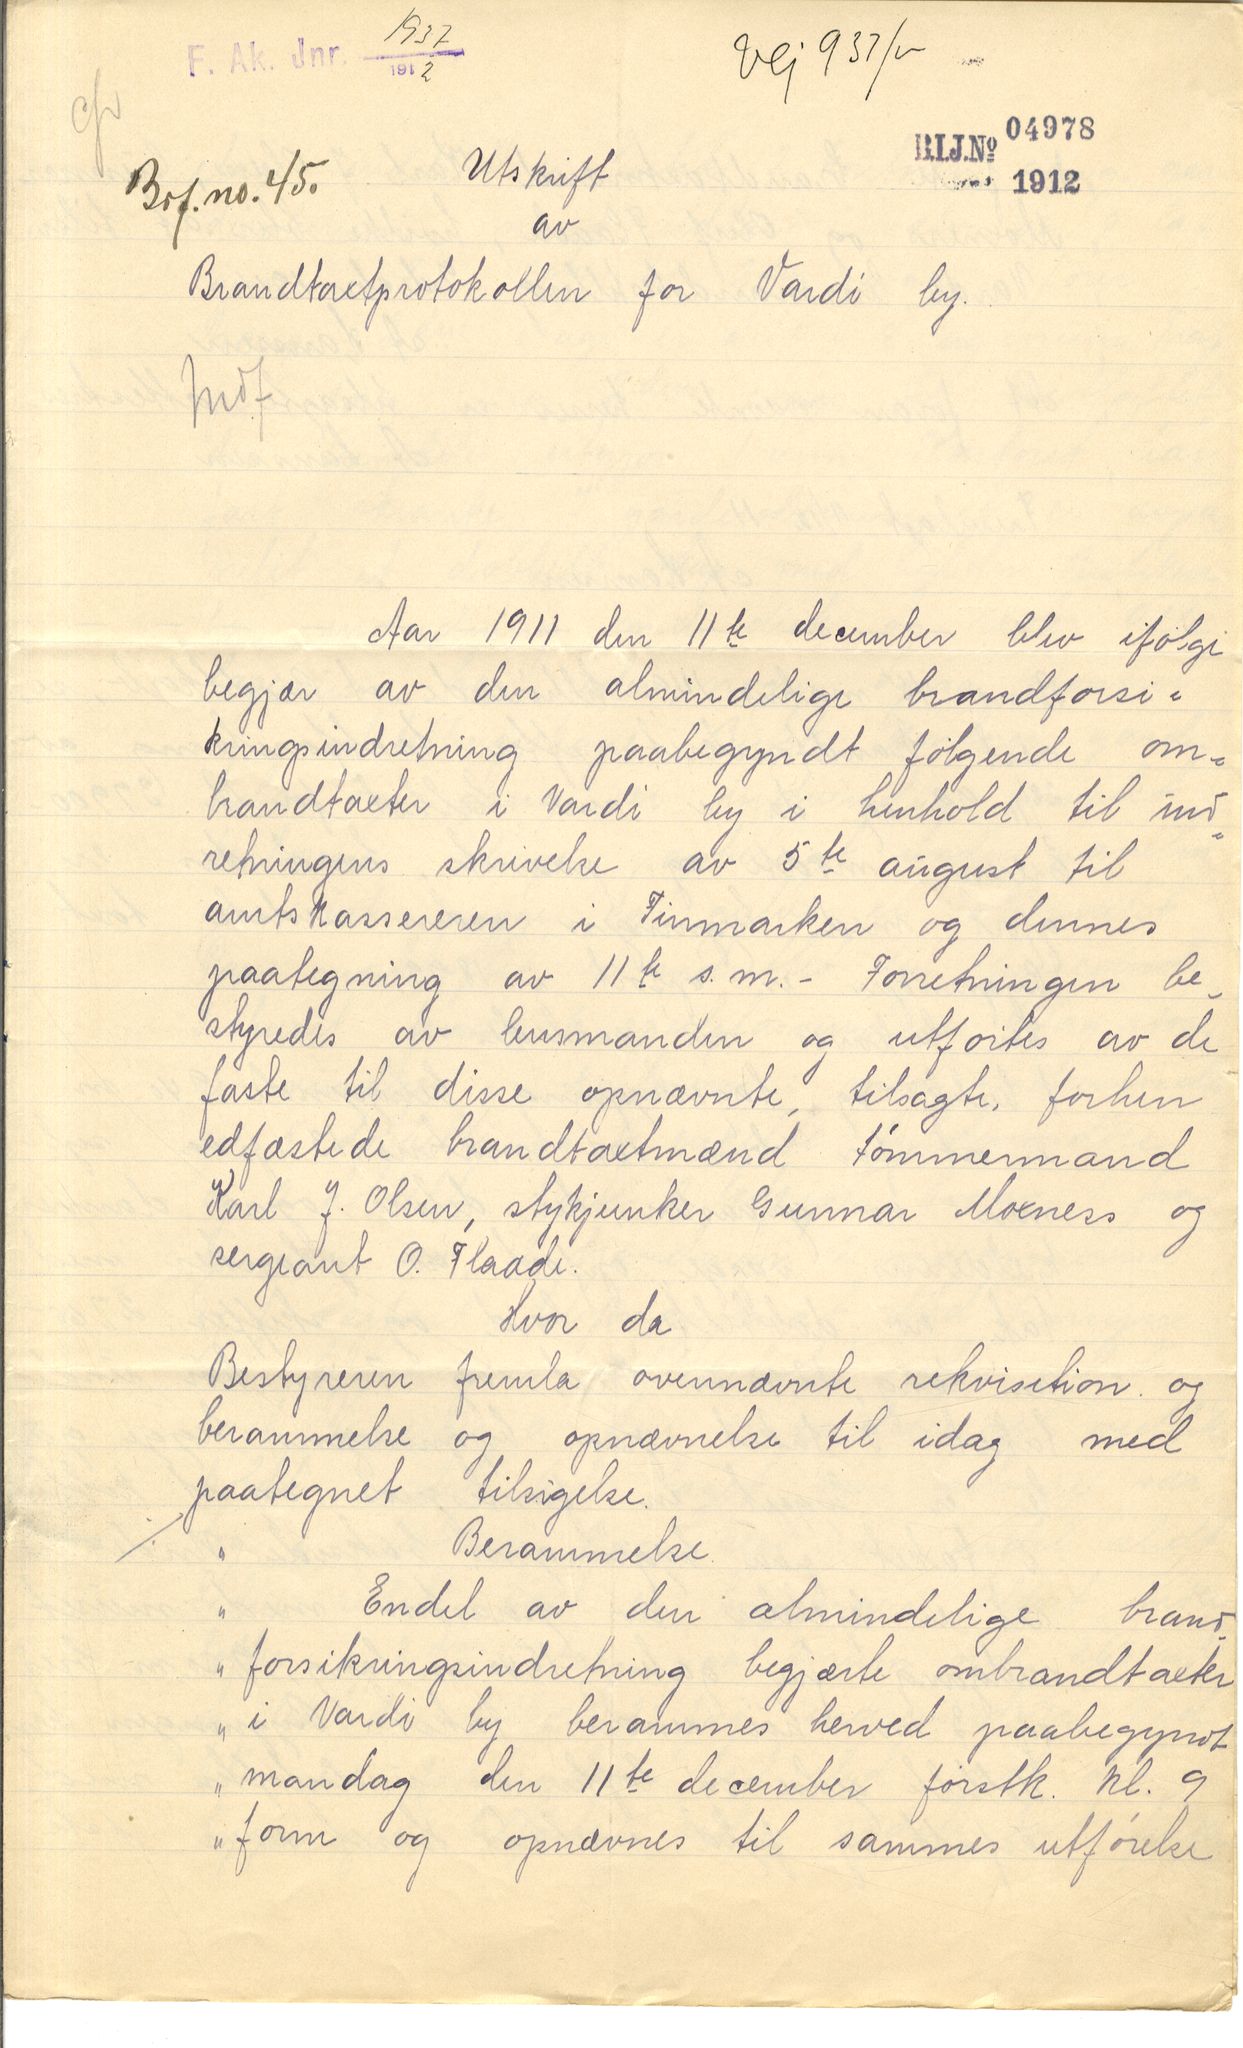 F. Ak. Jnr. 1937
1912
Vej 937/
B.I.J.No 04978
1912
Brf. no. 45.
Utskrift
av
Brandtaxtprotokollen for Vardö by.
Indf
Aar 1911 den 11te december blev ifölge
begjær av den almindelige brandforsi-
kringsindretning paabegyndt følgende om-
brandtaxter i Vardö by i henhold til ind-
retningens skrivelse av 5te august til
amtskassereren i Finmarken og dennes
paategning av 11te s.m. - Forretningen be-
styredes av lensmanden og utførtes av de
faste til disse opnævnte, tilsagte, forhen
edfæstede brandtaxtmænd tömmermand
Karl J. Olsen, stykjunker Gunnar Moeness og
sergeant O. Flaade.
Hvor da
Bestyreren fremla ovennævnte rekvisition og
berammelse og opnævnelse til idag med
paategnet tilsigelse.
" Berammelse.
" Endel av den almindelige brand-
" forsikringsindretning begjærte ombrandtaxter
" i Vardö by berammes herved paabegyndt
" mandag den 11te december førstk. kl. 9
" form og opnævnes til sammes utförelse